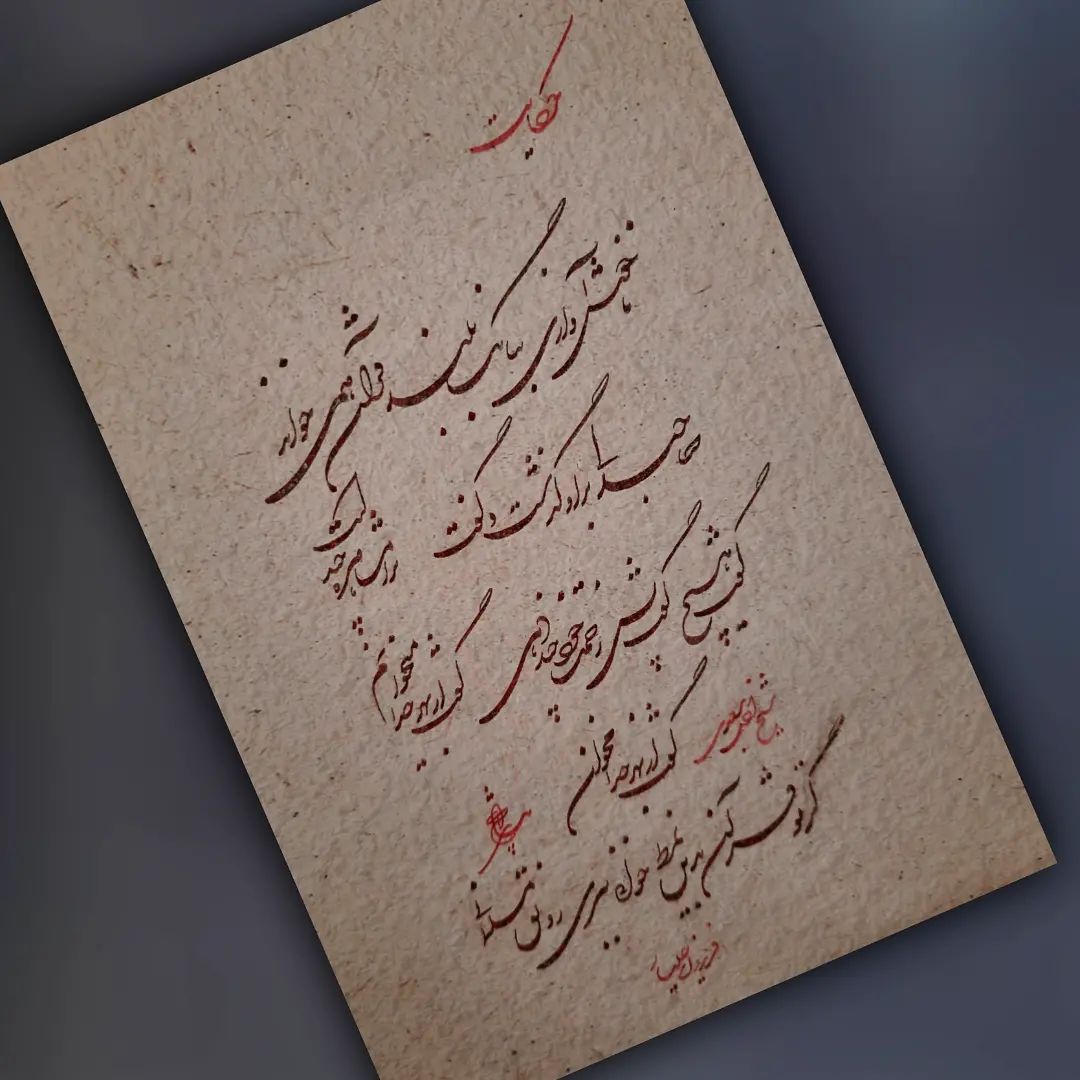 حکایت
ناخوش آوازی ببانگ بلند قرآن همی خواند
صاحبدلی برو گذشت و گفت
ترا مشاهره چند است
گفت هیچ گفتش پس زحمت خود چندین چرا همی دهی
گفت از بهر خدا میخوانم
گفت از بهر خدا مخوان
شیخ اجل سعدی
گر تو قرآن بدین نمط خوانی ببری رونق مسلمانی